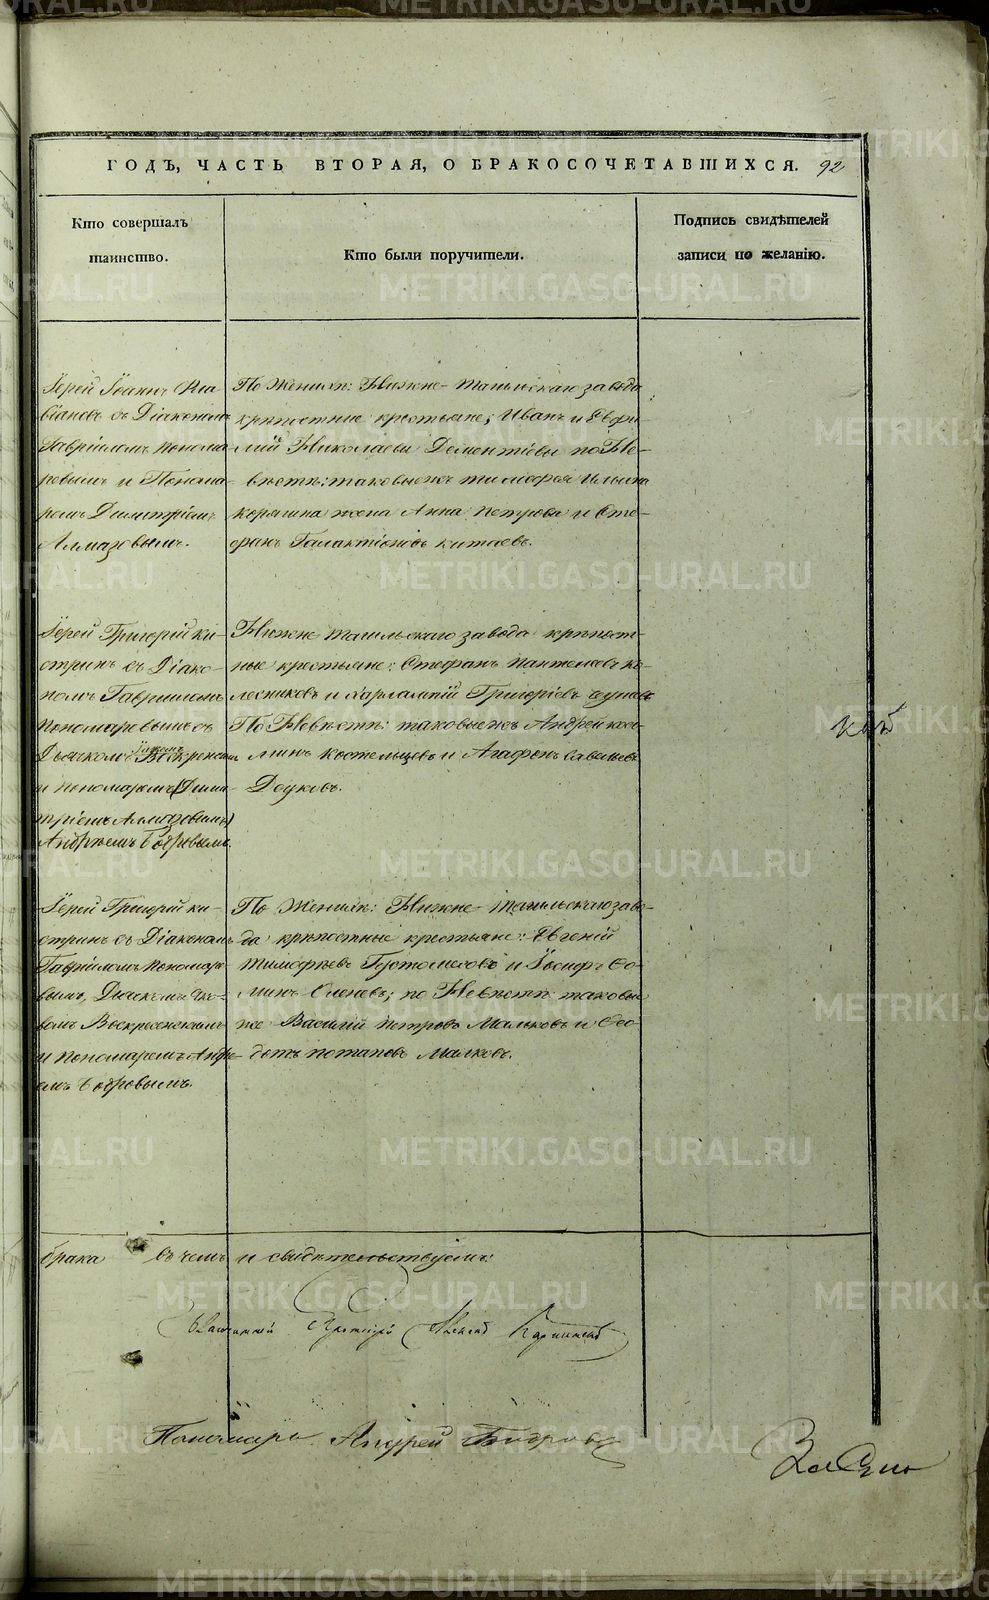 ГОДЪ, ЧАСТЬ ВТОРАЯ, О БРАКОСОЧЕТАВШИХСЯ. 92
Кто совершалъ
таинство.
Кто были поручители.
Подпись свидѣтелей
записи по желанію.
Іерей Іоаннъ Фла-
віановъ съ Діакономъ
Гавріиломъ Понома-
ревымъ и Понома-
ремъ Димитріемъ
Алмазовымъ.
По Женихѣ: Нижне-Тагильскаго завода
крѣпостные крестьяне; Иванъ и Евфи-
мій Николаевы Дементіевы по Не-
вѣстѣ: таковыеже тимофея Ильина
корягина жена Анна Петрова и Сте-
фанъ Галактіоновъ китаевъ.
Іерей Григорій ки-
стринъ съ Діако-
номъ Гавріиломъ
Пономаревымъ съ
Дьячкомъ Воскресенскимъ
и пономаремъ (Дими-
тріемъ Алмазовымъ)
Андреемъ Бобровымъ.
Нижне-тагильскаго завода крѣпост-
ные крестьяне: Стефанъ пантелеевъ ко-
лесниковъ и Харлампій Григорьевъ
По Невѣстѣ: таковыежъ Андрей коз-
минъ костельцевъ и Агафонъ савельевъ
Доуковъ.
Іерей Григорій ки-
стринъ съ Діакономъ
Гавріиломъ Пономаре-
вымъ, Дьячкомъ
Воскресенскимъ
и Пономаремъ Андре-
емъ Бобровымъ.
По Женихѣ: Нижне-Тагильскаго заво-
да крѣпостные крестьяне: Евгеній
Тимофѣевъ и Іосифъ Ѳо-
минъ Оленевъ; по Невѣстѣ: таковые
же Василій Петровъ Мальковъ и Ѳео-
дотъ потаповъ Малковъ.
брака въ чемъ и свидѣтельствуемъ:
Благочинный Протоіерей Карпинскій
Пономарь Андрей Бобровъ
METRIKI.GASO-URAL.RU